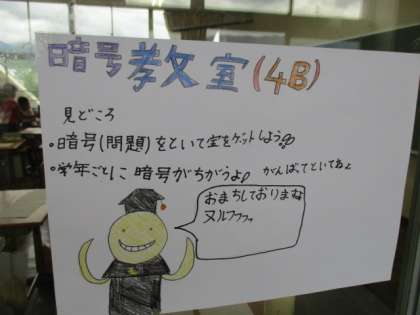 暗号教室(4B)
見どころ
・暗号(問題)をといて宝をゲットしよう
・学年ごとに暗号がちがうよ がんばってといてねっ
おまちしておりまな
ヌルフフフッ